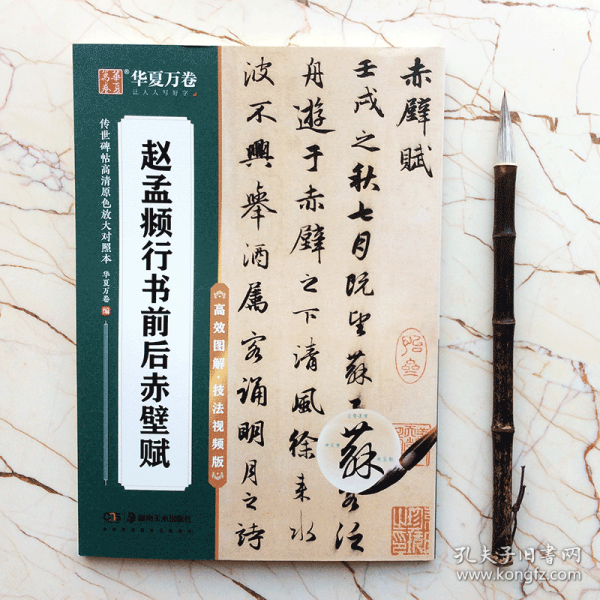 華夏
萬卷
®
华夏万卷
让人人写好字
传世碑帖高清原色放大对照本
华夏万卷 编
赵孟頫行书前后赤壁赋
高效图解·技法视频版
湖南美术出版社
赤壁賦
壬戌之秋七月既望蘇子
舟遊于赤壁之下清風徐来水
波不興舉酒属客誦明月之詩
蘇
孔夫子旧书网
www.kongfz.com